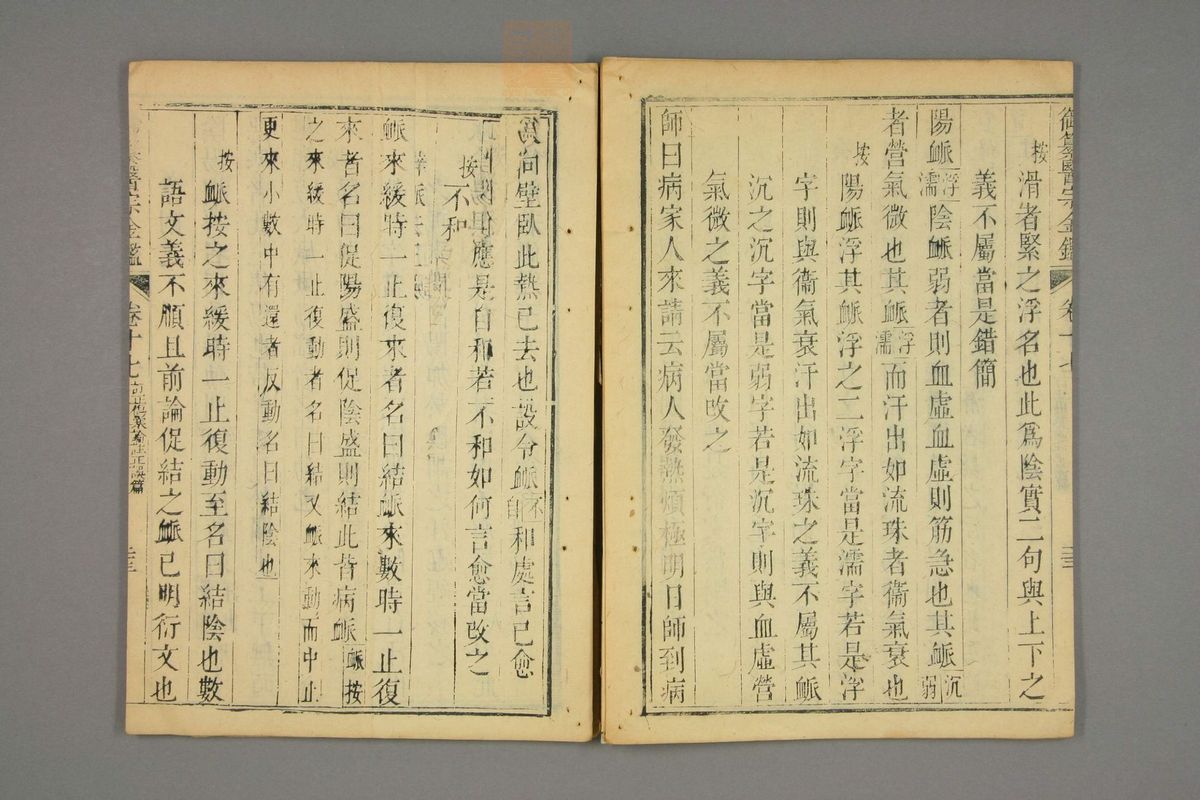 御纂醫宗金鑑 卷十七
按滑者緊之浮名也此爲陰實二句與上下之
義不屬當是錯簡
陽脈浮濡陰脈弱者則血虛血虛則筋急也其脈沉弱
者營氣微也其脈浮濡而汗出如流珠者衞氣衰也
按陽脈浮其脈浮之二浮字當是濡字若是浮
字則與衞氣衰汗出如流珠之義不屬其脈
沉之沉字當是弱字若是沉字則與血虛營
氣微之義不屬當改之
師曰病家人來請云病人發熱煩極明日師到病
爲向壁臥此熱已去也設令脈不自和處言已愈
按不和
應是自和若不和如何言愈當改之
脈來緩時一止復來者名曰結脈來數時一止復
來者名曰促陽盛則促陰盛則結此皆病脈脈按
之來緩時一止復動者名曰結又脈來動而中止
更來小數中有還者反動名曰結陰也
按脈按之來緩時一止復動至名曰結陰也數
語文義不順且前論促結之脈已明衍文也
醫宗金鑑 卷十七 篇